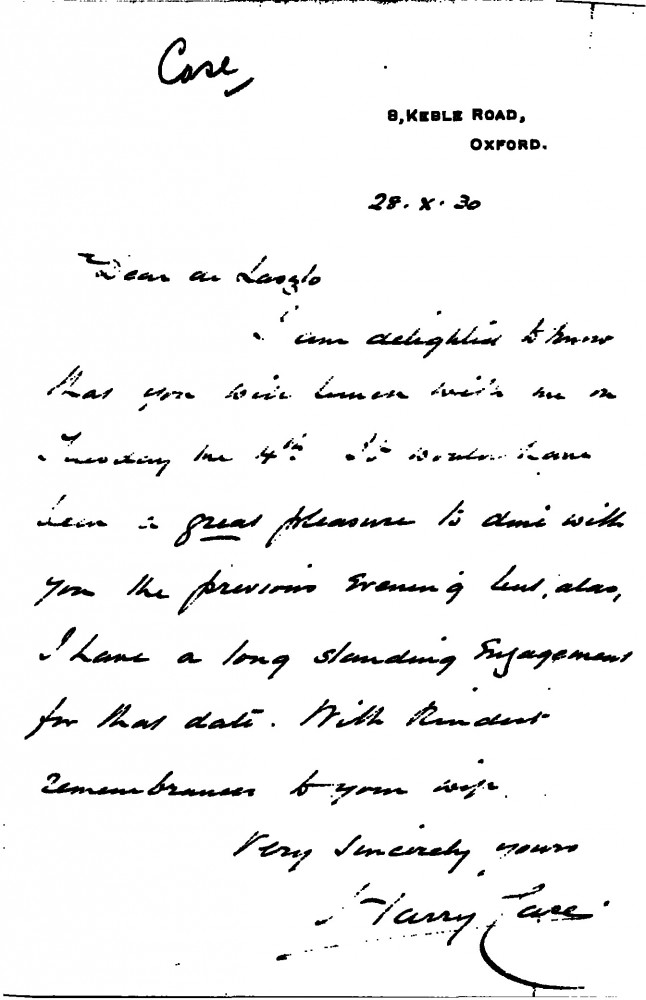 Case,
8, KEBLE ROAD,
OXFORD.
28. X. 30
Dear de Laszlo
I am delighted to know
that you will lunch with me on
Tuesday the 4th. It would have
been a great pleasure to dine with
you the previous Evening but, alas,
I have a long standing Engagement
for that date. With kindest
remembrances to your wife.
Very Sincerely yours
Harry Case.